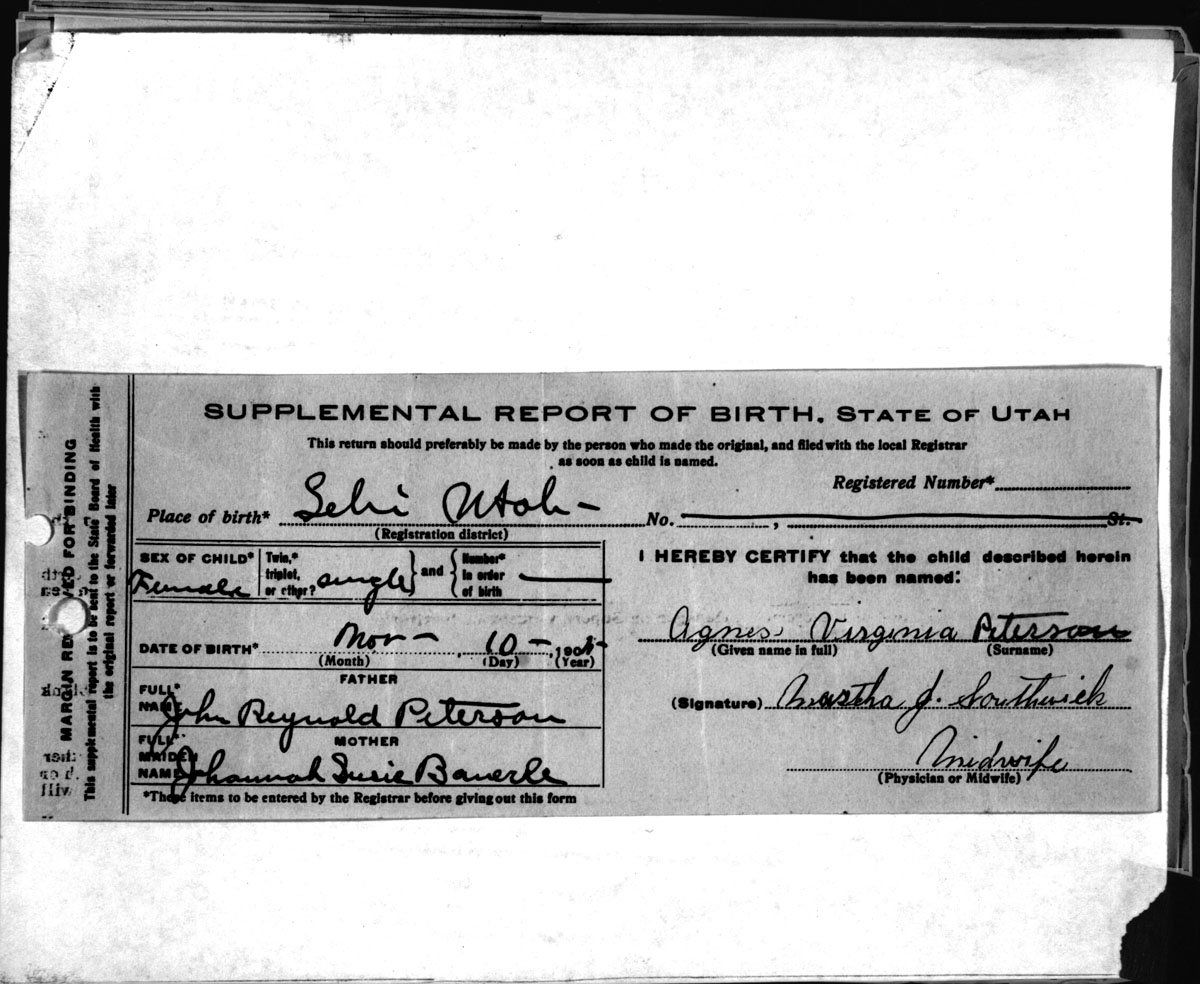 SUPPLEMENTAL REPORT OF BIRTH. STATE OF UTAH
This return should preferably be made by the person who made the original, and filed with the local Registrar
as soon as child is named.
Registered Number*
Place of birth* Lehi Utah - No. , St.
(Registration district)
SEX OF CHILD* Female Twin,* triplet, or other? single and Number* in order of birth
I HEREBY CERTIFY that the child described herein
has been named:
Agnes Virginia Peterson
(Given name in full) (Surname)
DATE OF BIRTH* Nov - 10 - , 190
(Month) (Day) (Year)
FATHER
FULL* NAME John Reynold Peterson
(Signature) Martha J. Southwick
MOTHER
FULL* MAIDEN NAME Johannah Susie Bauerle
Midwife
(Physician or Midwife)
*These items to be entered by the Registrar before giving out this form
MARGIN RE VED FOR BINDING
This supplemental report is to be sent to the State Board of Health with
the original report or forwarded later